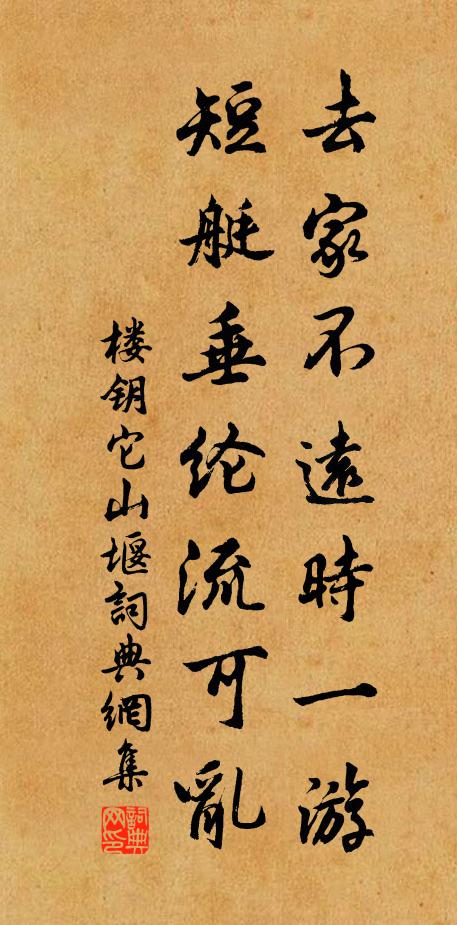 去家不遠時一游
短艇垂纶流可亂
楼钥它山堰詞典網集
詞典网印